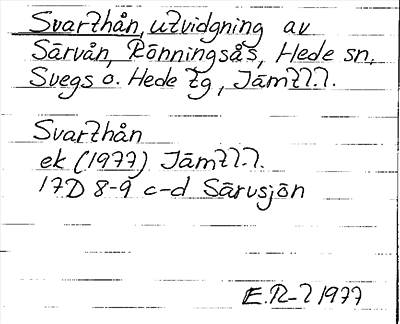 Svarthån, utvidgning av
Särvån, Rönningsås, Hede sn,
Svegs o. Hede tg, Jämtl.l.
Svarthån
ek (1977) Jämtl.l.
17D 8-9 c-d Särvsjön
E.R-l 1977